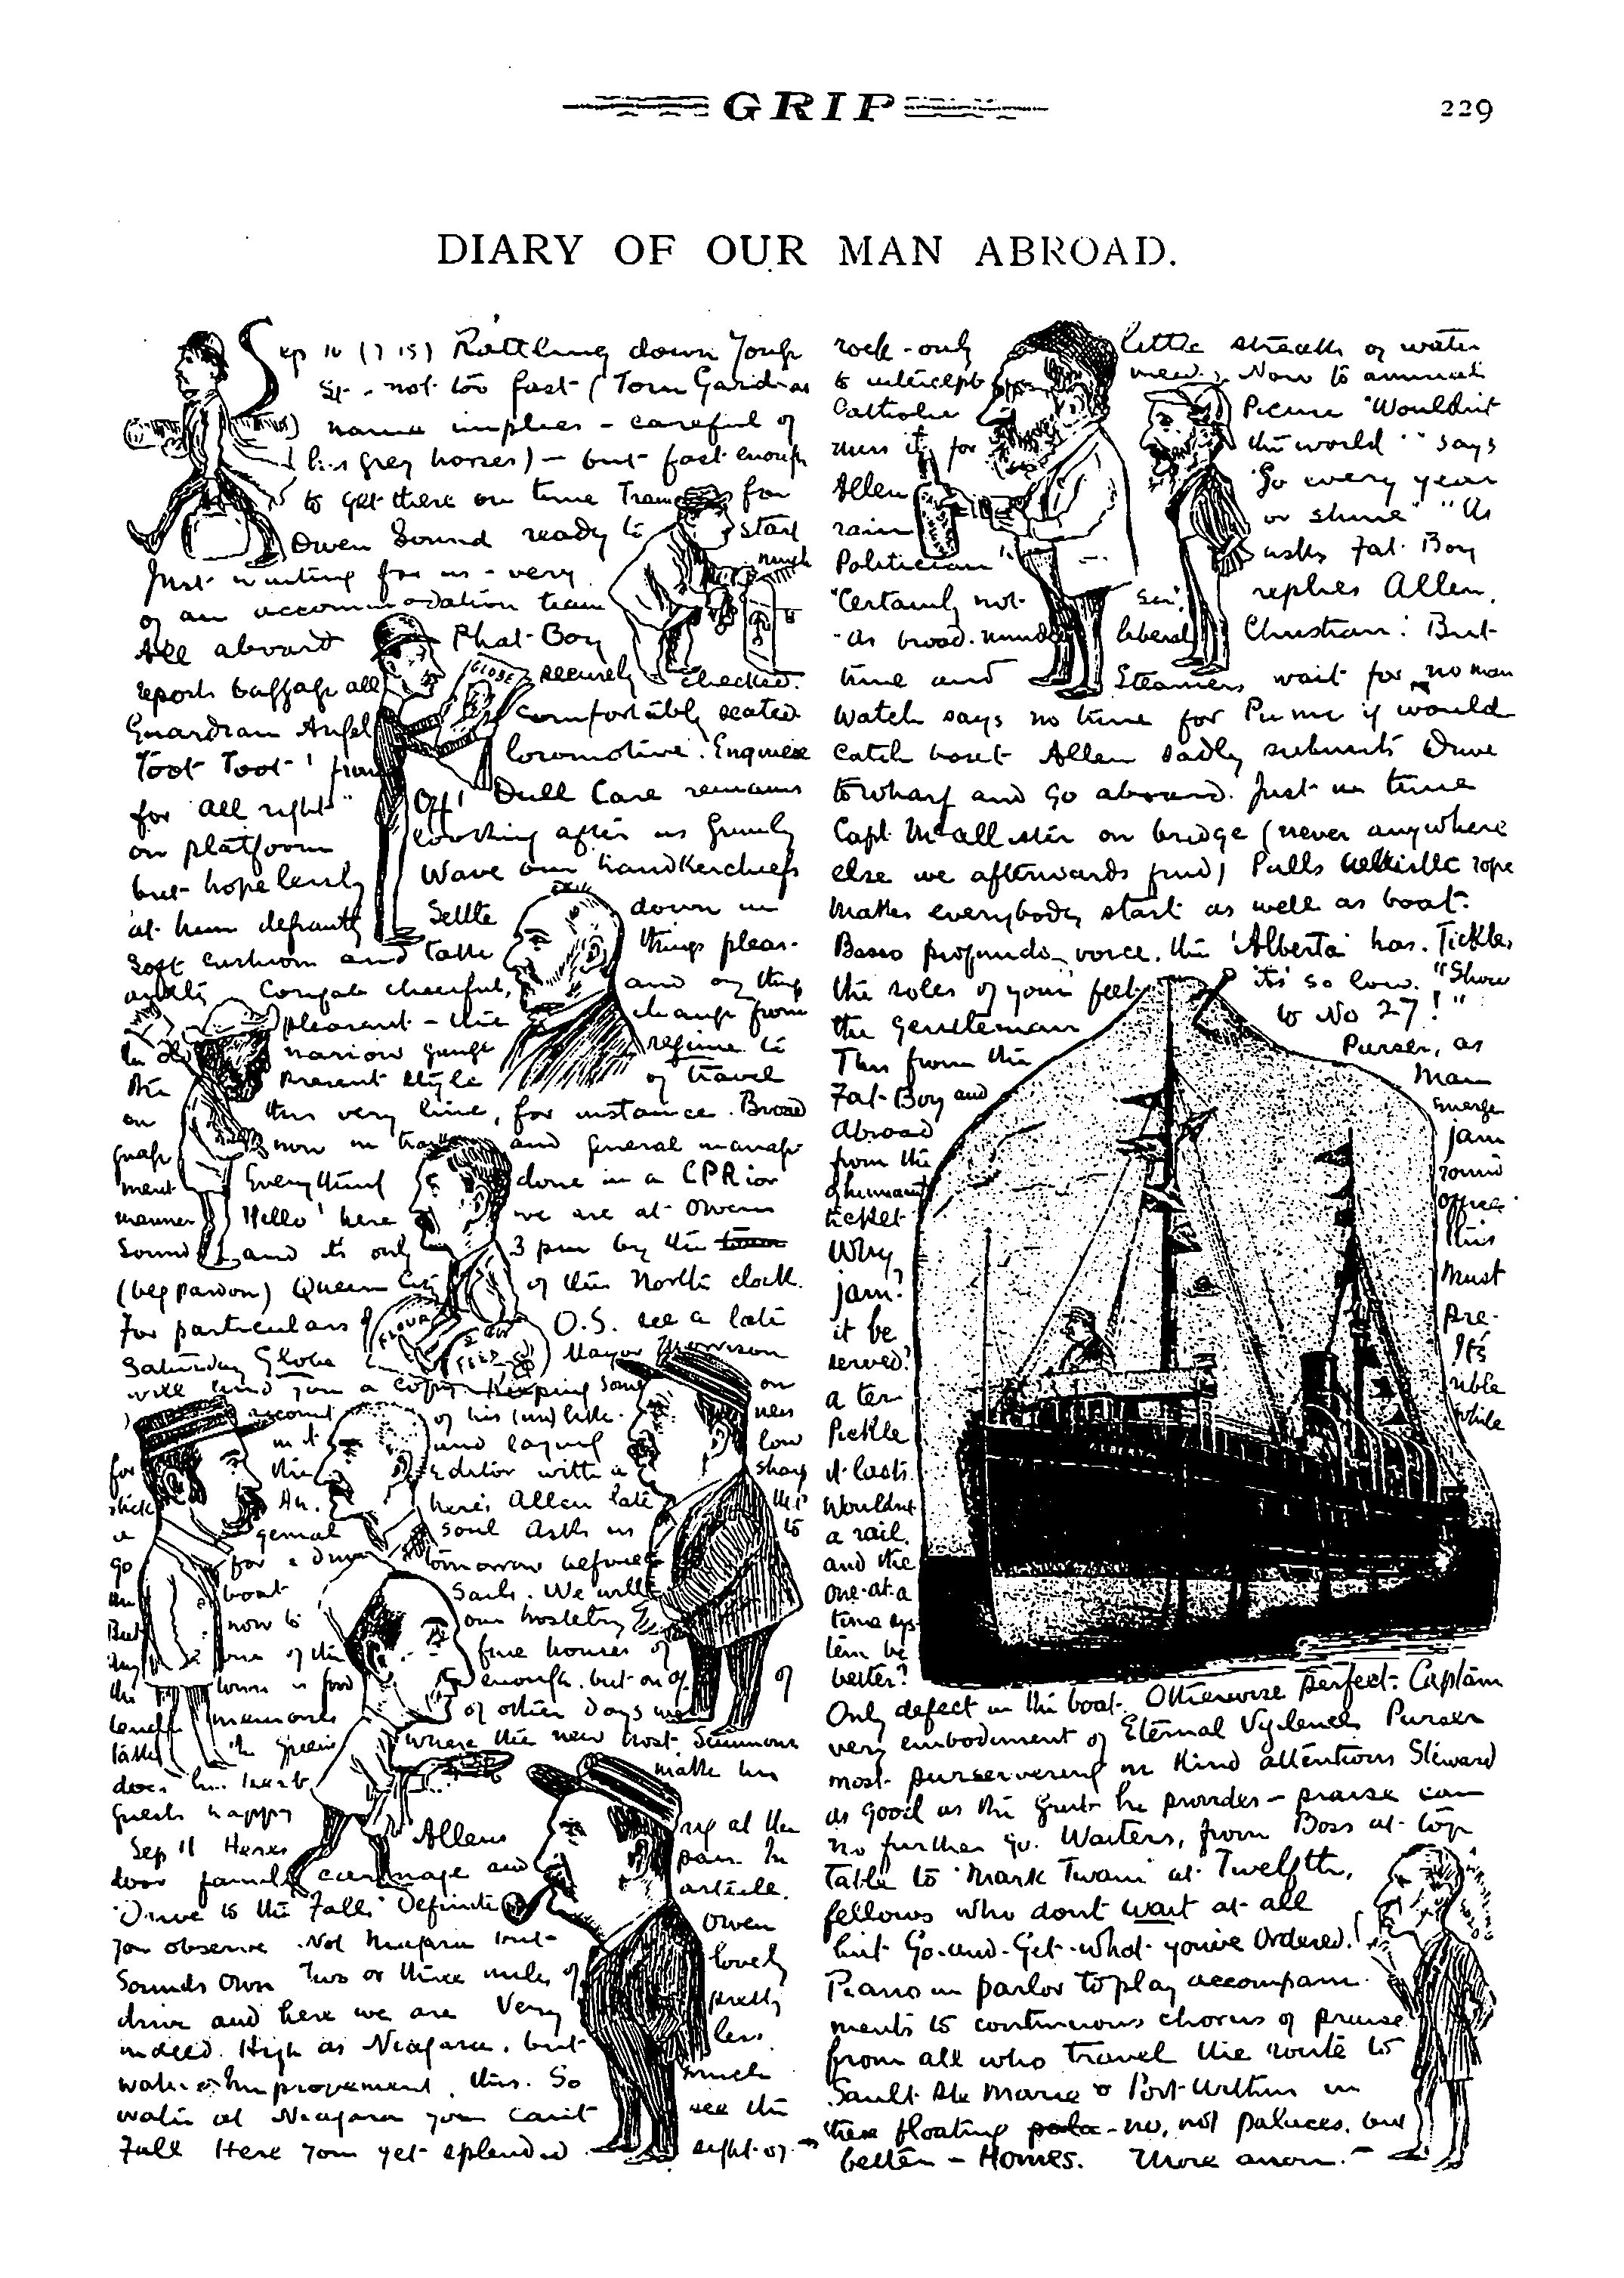 GRIP
229
DIARY OF OUR MAN ABROAD.
Sep 10 (7 15) Rattling down Yonge
St. - not too fast (Tom Gard as
name implies - careful of
his grey horses) - but fast enough
to get there on time Train for
Owen Sound ready to start
Just waiting for us - very much
of an accommodation train
All aboard Phat-Boy
reports baggage all securely checked.
GLOBE
Guardian Angel comfortably seated
Toot Toot! from locomotive. Enquires
for "all right" Off! Dull Care remains
on platform looking after us grimly
but hopelessly Wave our handkerchiefs
at him defiantly Settle down in
soft cushion and talk things pleas-
antly Cougate cheerful, and any thing
pleasant - the change from
narrow gauge regime to
the present style of travel
on this very line, for instance. Broad
guage now in tracks and general manage
ment Everything done in a CPR ior
manner Hello! here we are at Owen
Sound and its only 3 pm by the town
(beg pardon) Queen City of the North clock.
For particulars of O.S. see a late
FLOUR
Saturday Globe Mayor Morrison
will send you a copy Keeping some on
account of his (un)like. ness
in it and laying low
for the Editor with a sharp
stick Ah. here's Allen late the
genial soul Asks us to
go for a drive tomorrow before
the boat Sails. We will
But now to our hostelry
they one of the fine houses of
the town is good enough. but on of of
memories of other days we
the Queens where the new host Simmons
does his best to make his
guests happy
Sep 11 Heres Allens rig at the
door family carriage and pair. In
"Drive to the Falls" Definite article.
you observe. Not Niagara but Owen
Sounds own Two or three miles of lovely
drive and here we are Very pretty
indeed. High as Niagara. but less
water - an improvement, this. So much
water at Niagara you cant see the
Fall Here you yet splendid sight of
rock - only little streaks of water
to intercept view. Now to annual
Catholic Picnic "Wouldn't
miss it for the world" says
Allen "Go every year
rain or shine" "As
Politician" asks Fat Boy
"Certainly not sir", replies Allen,
"As broad-minded liberal Christian! But
time and Steamers wait for no man
Watch says no time for Picnic if would
catch boat Allen sadly submits Drive
to wharf and go aboard. Just in time
Capt. McAllister on bridge (never anywhere
else we afterwards find) Pulls whistle rope
Makes everybody start as well as boat.
Basso profundo voice, the 'Alberta' has. Tickles
the soles of your feet its so low. "Show
the gentleman to No 27!"
This from the Purser, as
Fat-Boy and Man
Abroad emerge
from the jam
of humanity round
ticket office.
Why this
jam? Must
it be pre-
served? It's
a ter rible
Pickle while
it lasts.
Wouldnt
a rail.
and the
one-at-a
time sys-
tem be
better?
ALBERTA
Only defect in the boat. Otherwise perfect. Captain
very embodiment of Eternal Vigilence Purser
most purservering in Kind attentions Steward
as good as the grub he provides - praise can
no further go. Waiters, from Boss at top
table to 'Mark Twain' at Twelfth,
fellows who dont wait at all
but Go-and-Get-what you've Ordered.
Piano in parlor to play accompani-
ments to continuous chorus of praise
from all who travel the route to
Sault Ste Marie & Port Arthur in
these floating pala - no, not palaces, but
better - Homes. More anon. -